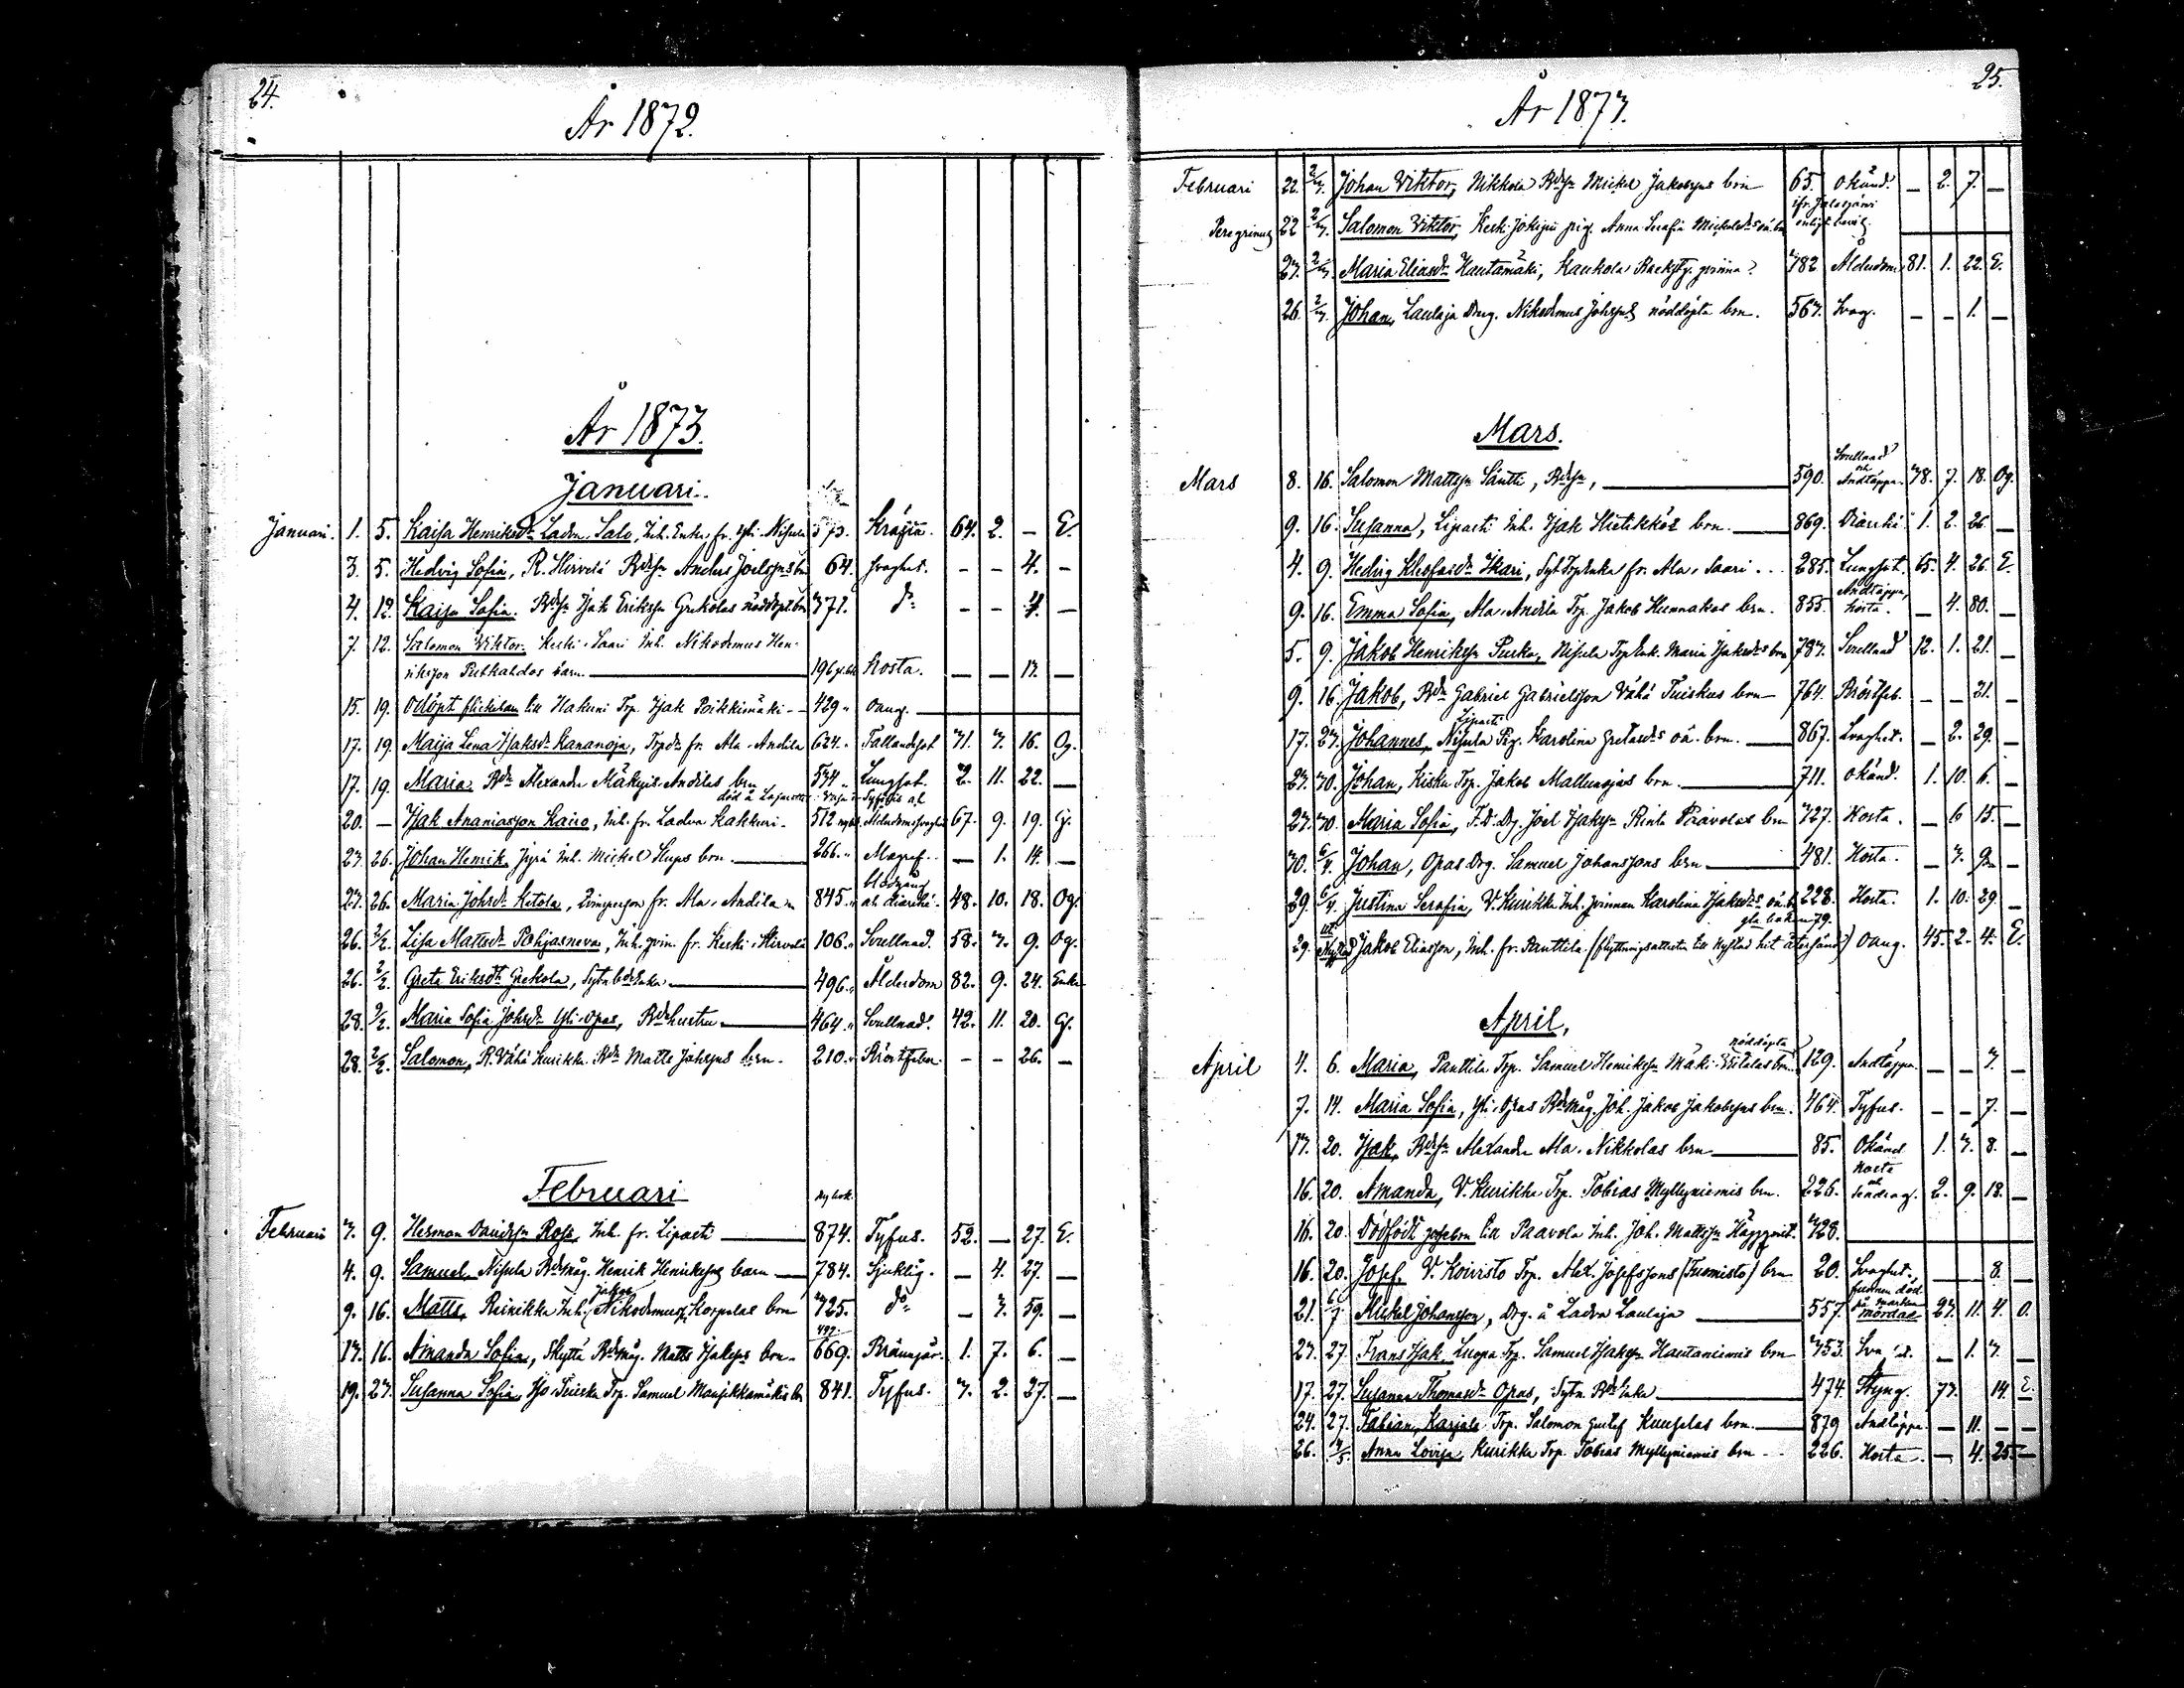 24.
År 1872.
År 1873.
Januari.
Januari. 1. 5. Kaisa Henriksdr Ladon Salo, Inh. Enka fr. Yli-Nisula 573. Kräfta. 64. 2. — E.
3. 5. Hedvig Sofia, R. Hirvelä Bdesn Anders Joelsons bn 64. svaghet. — — 4. —
4. 12. Kaisa Sofia. Bdesn Isak Eriksson Grekolas nöddöpt. bn 371. do — — 4. —
7. 12. Salomon Viktor. Keski-Saari Inh. Nikodemus Hen-
riksson Putkahdos barn. 196 Hosta. — — 13. —
15. 19. Odöpt flickebarn till Hakuni Trp. Isak Poikkimäki — 429 " oang.
17. 19. Maija Lena Isaksdr Kananoja, Trpdr fr. Ala-Andila 624. " Fallandesot 31. 3. 16. Og.
17. 19. Maria. Bdn Alexander Mäkynis-Andilas brn 534 " Lungsot. 2. 11. 22. —
död å Lazarettet
20. — Isak Ananiasson Kairo, Inh. fr. Ladva Kakkuri. 512 Ålderdomssvaghet 67. 9. 19. G.
23. 26. Johan Henrik, Jyrä Inh. Mickel Hups brn. 266. " Magref. — 1. 14. —
blodgång
23. 26. Maria Johsdr Ketola, Qvinsperson fr. Ala-Andila 845. " ab diarrhé. 48. 10. 18. Og.
26. 2/2. Lisa Mattsdr Pohjasneva, Inh. qvin. fr. Keski-Hirvelä 106. " Svullnad. 58. 3. 9. Og.
26. 2/2. Greta Eriksdr Grekola, Sytn bdeenka 496. " Ålderdom 82. 9. 24. Enka
28. 9/2. Maria Sofia Johsdr Yli-Opas, Bdehustru 464. " Svullnad. 42. 11. 20. G.
28. 2/2. Salomon, R. Vähä Kurikka Bdn Matts Johssons brn. 210. " Bröstfeber. — — 26. —
Februari Ny bok.
Februari 3. 9. Herman Davidsson Ross, Inh. fr. Lipasti 874. Tyfus. 52. — 27. E.
4. 9. Samuel Nisula Bdemåg. Henrik Henrikssons barn 784. Sjuklig. — 4. 27. —
Jakob
9. 16. Matts, Reinikka Inh. Nikodemuss. Korpelas brn 325. do — 3. 59. —
499.
13. 16. Amanda Sofia, Skyttä Bdemåg. Matts Isakssons brn. 669. Bränsjär. 1. 7. 6. —
19. 23. Susanna Sofia, Iso-Tuiska Trp. Samuel Mansikkamäkis br 841. Tyfus. 3. 2. 27. —
25.
År 1873.
Februari 22. 2/3. Johan Viktor, Nikkola Bdesn Mickel Jakobssons brn 65. okänd. — 2. 7. —
ifr. Jalasjärvi
Peregrinus 22 2/3. Salomon Viktor, Keski-Jokipii pig. Anna Serafia Mickelsdrs oä. bn enligt bevis.
23. 2/3. Maria Eliasdr Hautamäki, Kaukola Backstg. qvinna 382 Ålderdom 81. 1. 22. E.
26. 2/3. Johan, Laulaja Drg. Nikodemus Johssons nöddöpta brn. 567. Svag. — — 1. —
Mars.
Svullnad
och
Mars 8. 16. Salomon Mattsson Säntti, Bdesn, 590. Andtäppa. 78. 7. 18. Og.
9. 16. Susanna, Lipasti Inh. Isak Hietikkös brn. 869. Diarrhé. 1. 2. 26 —
4. 9. Hedvig Kleofasdr Ikari, Syt. Trpenka fr. Ala-Saari. 285. Lungsot. 65. 4. 26. E.
Andtäppa,
9. 16. Emma Sofia, Ala-Andila Trp. Jakob Hunnakos brn. 855. hosta. — 4. 80. —
5. 9. Jakob Henriksson Purka, Nisula Trpenk. Maria Isaksdrs brn 787. Svullnad 12. 1. 21. —
9. 16. Jakob, Bdn Gabriel Gabrielsson Vähä Tuiskus brn 764. Bröstfeb. — — 21. —
Lipasti
17. 23. Johannes, Nisula Pig. Karolina Gretasdrs oä. brn. 867. Svaghet. — 2. 29. —
23. 30. Johan, Kisku Trp. Jakob Mallunojas brn. 711. okänd. 1. 10. 6. —
23. 30. Maria Sofia, F.D. Drg. Joel Isaksson Rinta Paavolas brn 327. Hosta. — 6 15. —
30. 6/4. Johan, Opas Drg. Samuel Johanssons brn 481. Hosta. — 3. 9. —
29. 6/4. Justina Serafia, V. Kurikka Inh. qvinnan Karolina Isaksdrs oä. b 228. Hosta. 1. 10. 29. —
gla boken 79.
29. Jakob Eliasson, Inh. fr. Panttila. (flyttningsattesten till Nyland hit återsänd) Oang. 45. 2. 4. E.
April,
nöddöpta
April 4. 6. Maria, Panttila Trp. Samuel Henriksson Mäki-Viitalas brn. 129. Andtäppa. — — 3. —
7. 14. Maria Sofia, Yli-Opas Bdemåg. Joh. Jakob Jakobssons brn. 464. Tyfus. — — 7. —
13. 20. Isak, Bdesn Alexander Ala-Nikkolas brn 85. Okänd 1. 3. 8. —
Hosta
16. 20. Amanda, V. Kurikka Trp. Tobias Myllyniemis brn. 226. 2. 9. 18. —
16. 20. Dödfödt gossebrn till Paavola Inh. Joh. Mattsson Häggqvist. 328.
16. 20. Josef, V. Koivisto Trp. Alex. Josefssons (Tuomisto) brn 20. Svaghet. — — 8. —
funnen död
på marken
21. 6/7 Mickel Johansson, Drg. å Ladva Laulaja 557. mördad 23. 11. 4. O.
23. 27. Frans Isak, Luopa Trp. Samuel Isaksson Hautaniemis brn 753. — 1. 3. —
17. 27. Susanna Thomasdr Opas, Sytn. Bdeenka 474. Styng. 73. 14. E.
24. 27. Fabian, Karjala Trp. Salomon Gustaf Kuuselas brn. 879 Andtäppa. — 11. — —
26. 4/5. Anna Lovisa, Kurikka Trp. Tobias Myllyniemis brn 226. Hosta. — 4. 25. —